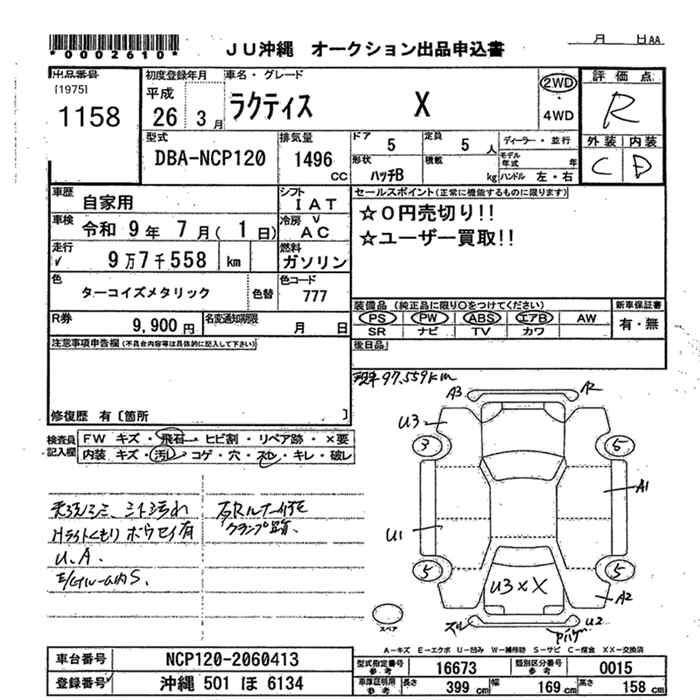 *0002610*
JU沖縄 オークション出品申込書
月 日AA
出品番号
[1975]
1158
初度登録年月
平成
26 3月
車名・グレード
ラクティス X
2WD
4WD
評価点
R
外装 内装
C D
型式
DBA-NCP120
排気量
1496
CC
ドア
5
定員
5 人
形状
ハッチB
積載
kg
ディーラー・並行
モデル年式 年
ハンドル 左・右
車歴
自家用
シフト
IAT
車検
令和 9年 7月( 1日)
冷房
AC
走行
9万7千558 km
燃料
ガソリン
色
ターコイズメタリック
色替
色コード
777
R券
9,900円
名変通知期限
月 日
セールスポイント(正常に機能するものに限ります)
☆0円売切り!!
☆ユーザー買取!!
装備品(純正品に限り○をつけてください)
PS PW ABS エアB AW
SR ナビ TV カワ
新車保証書
有・無
後日品
注意事項申告欄(不具合内容等は具体的に記入して下さい)
修復歴 有〔箇所 〕
検査員記入欄
FW キズ・飛石・ヒビ割・リペア跡・×要
内装 キズ・汚レ・コゲ・穴・スレ・キレ・破レ
97,559km
A3
R
U3
3
5
A1
U1
5
5
A2
U3××
ズレ
U2
スペア
シート汚れ
Hライトくもり
U.A.
A-キズ E-エクボ U-凹み W-補修跡 S-サビ C-腐食 XX-交換済
車台番号
NCP120-2060413
登録番号
沖縄 501 ほ 6134
型式指定番号
参考
16673
類別区分番号
参考
0015
車庫証明用
参考
長さ
399 cm
幅
169 cm
高さ
158 cm